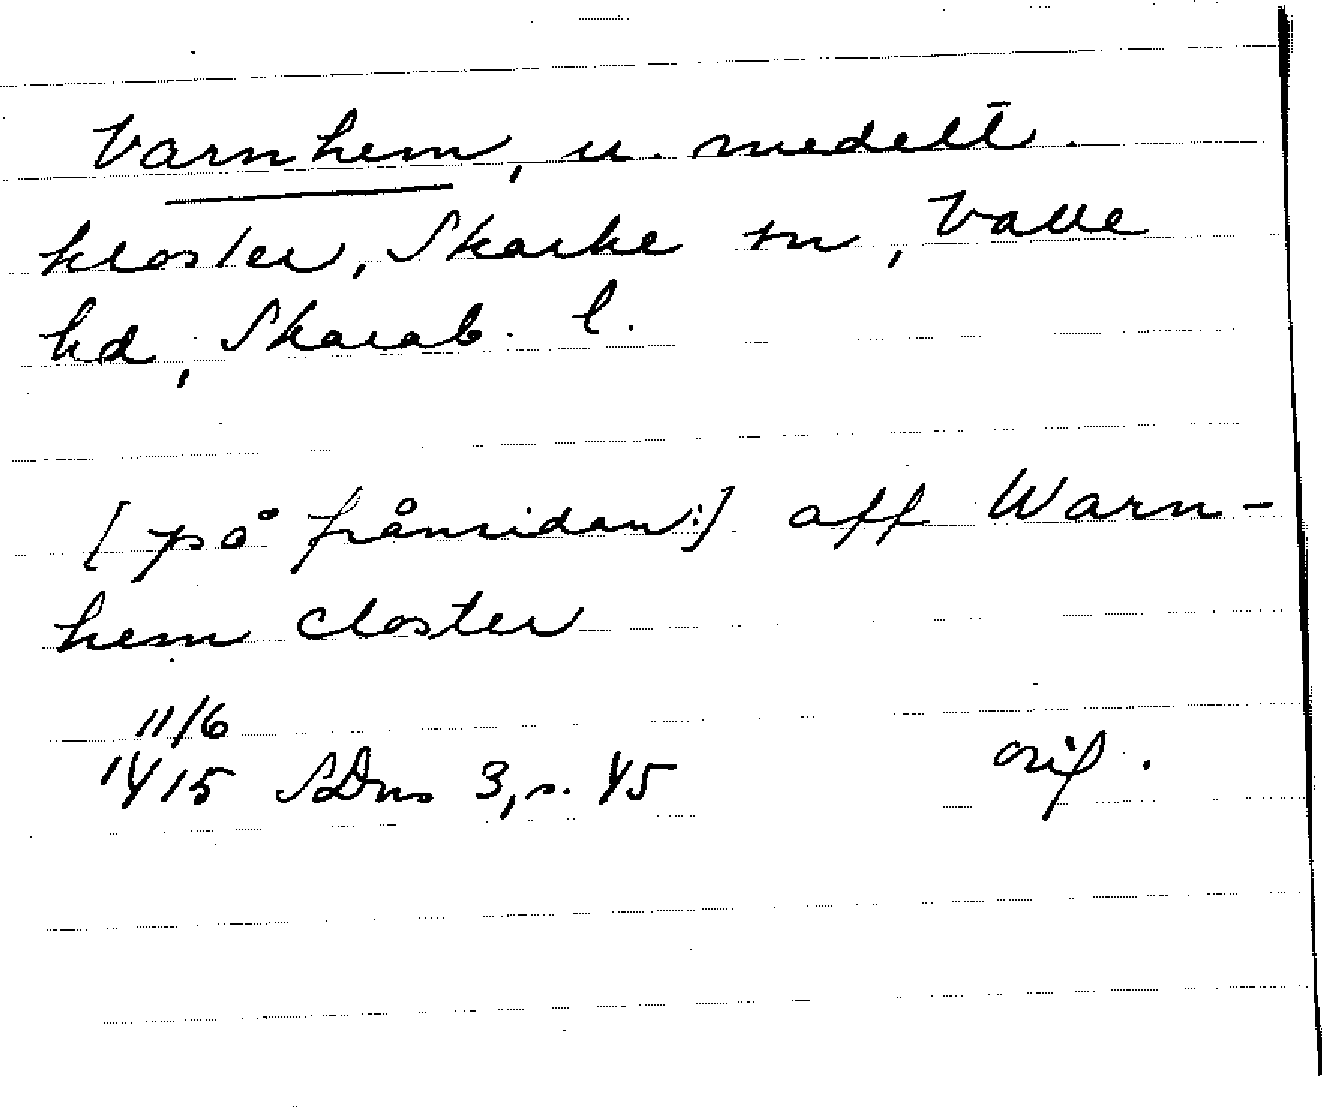 Varnhem, u. medelt̄.
kloster, Skarke sn, Valle
hd, Skarab. l.
[på frånsidan:] aff Warn-
hem closter
11/6
1415 SDns 3, s. 45 orig.